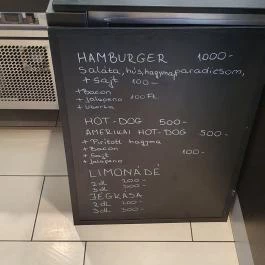 HAMBURGER 1000-
saláta, hús, hagyma, paradicsom,
+ sajt 100-
+ Bacon
+ Jalapeno 100 Ft.
+ Uborka
HOT-DOG 500-
AMERIKAI HOT-DOG 500-
+ Pirított hagyma
+ Bacon 100-
+ Sajt
+ Jalapeno
LIMONÁDÉ
2dl 200-
3dl 300-
JÉGKÁSA
2dl 200-
3dl 300-